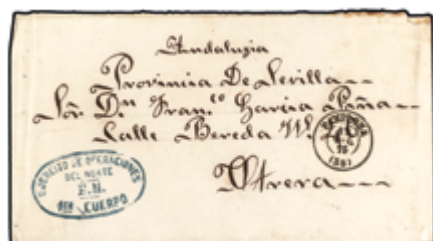 Andalugia
Provinia De Sevilla
Sör Dn. Fran.co Garcia Paña
Calle Pereda
Utrera
EJERCITO DE OPERACIONES
DEL NORTE
E.M.
CUERPO